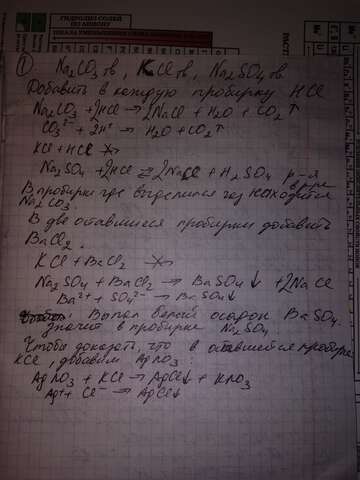 ГИДРОЛИЗ СОЛЕЙ
ПО АНИОНУ
① Na₂CO₃ тв, KCl тв, Na₂SO₄ тв
Добавить в каждую пробирку HCl
Na₂CO₃ + 2HCl → 2NaCl + H₂O + CO₂↑
CO₃²⁻ + 2H⁺ → H₂O + CO₂↑
KCl + HCl ↛
Na₂SO₄ + 2HCl ⇄ 2NaCl + H₂SO₄ р-я
В пробирке где выделился газ находится
Na₂CO₃.
В две оставшиеся пробирки добавить
BaCl₂.
KCl + BaCl₂ ↛
Na₂SO₄ + BaCl₂ → BaSO₄↓ + 2NaCl
Ba²⁺ + SO₄²⁻ → BaSO₄↓
Выпал белый осадок BaSO₄.
значит в пробирке Na₂SO₄
Чтобы доказать, что в оставшейся пробирке
KCl, добавим AgNO₃:
AgNO₃ + KCl → AgCl↓ + KNO₃
Ag⁺ + Cl⁻ → AgCl↓